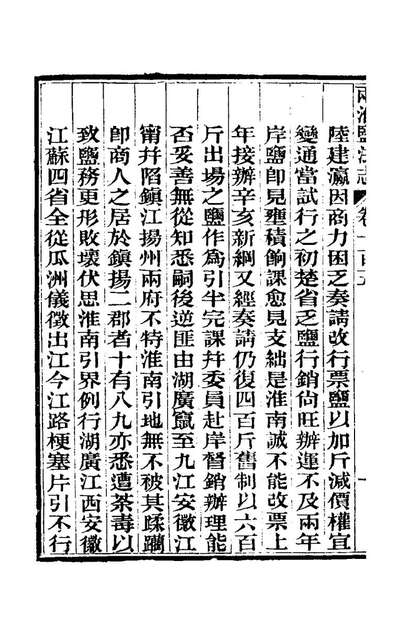 兩淮鹽法志 卷一百五 一
陸建瀛因商力困乏奏請改行票鹽以加斤減價權宜
變通當試行之初楚省乏鹽行銷尚旺辦運不及兩年
岸鹽卽見壅積餉課愈見支絀是淮南誠不能改票上
年接辦辛亥新綱又經奏請仍復四百斤舊制以六百
斤出場之鹽作爲引半完課幷委員赴岸督銷辦理能
否妥善無從知悉嗣後逆匪由湖廣竄至九江安徽江
甯幷陷鎮江揚州兩府不特淮南引地無不被其蹂躪
卽商人之居於鎮揚二郡者十有八九亦悉遭荼毒以
致鹽務更形敗壞伏思淮南引界例行湖廣江西安徽
江蘇四省全從瓜洲儀徵出江今江路梗塞片引不行